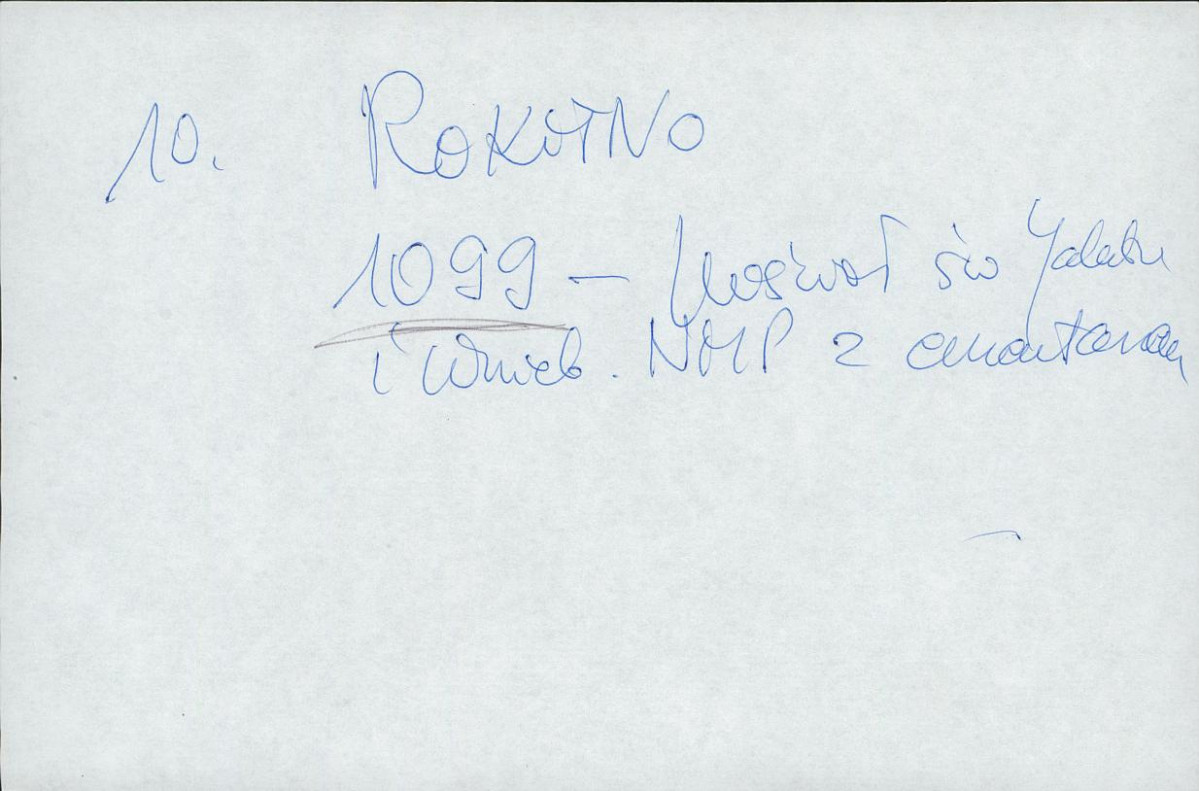 10. ROKITNO
1099 – Kościół św Jakuba
i Wnieb. NMP z cmentarzem